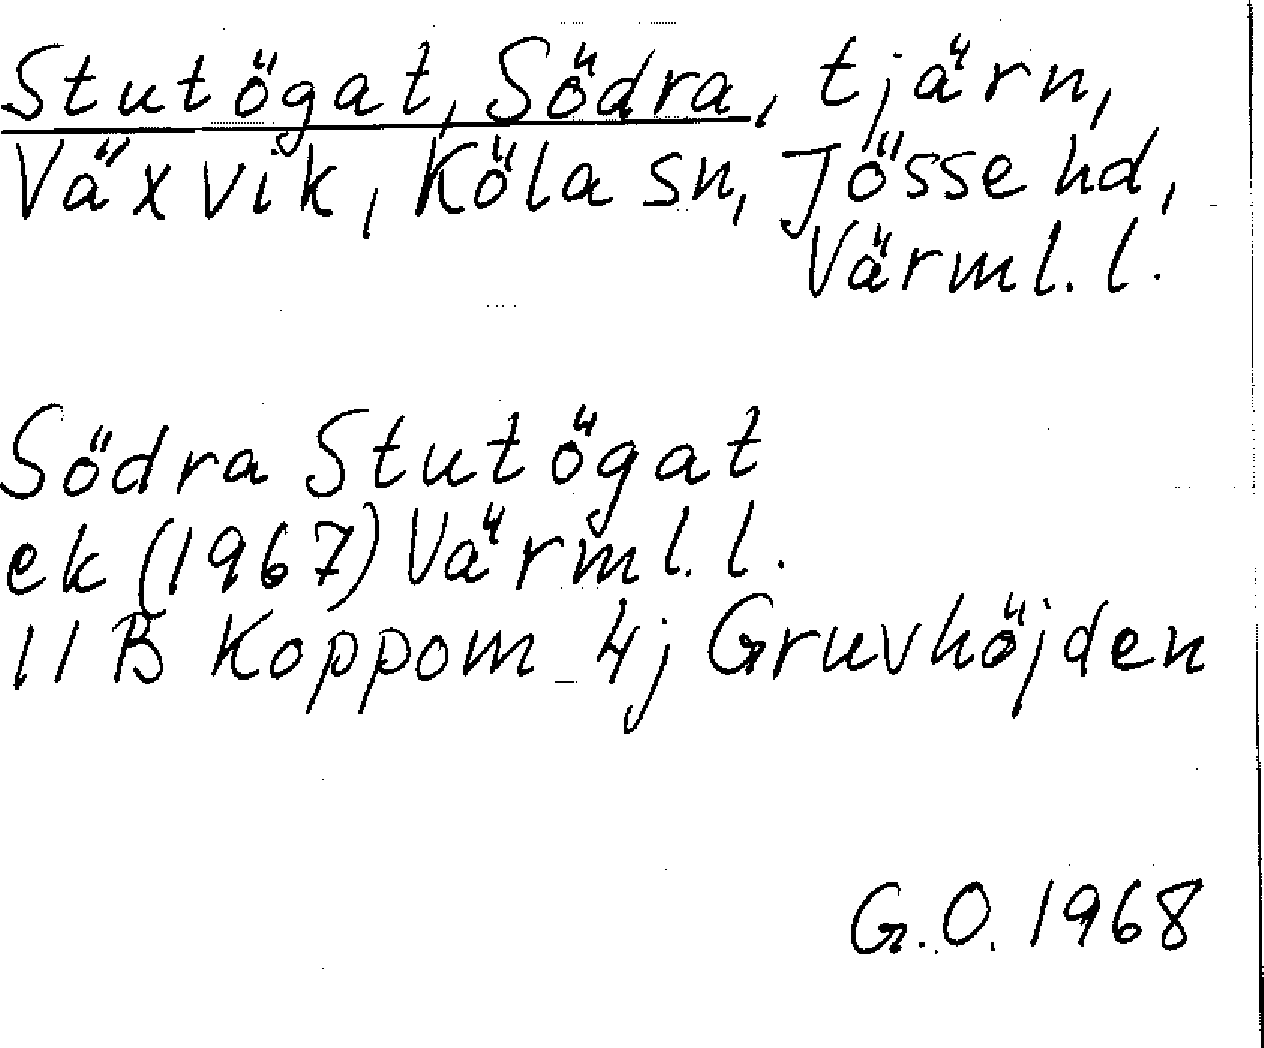 Stutögat, Södra, tjärn,
Växvik, Köla sn, Jösse hd,
Värml. l.
Södra Stutögat
ek (1967) Värml. l.
11 B Koppom 4j Gruvhöjden
G.O. 1968